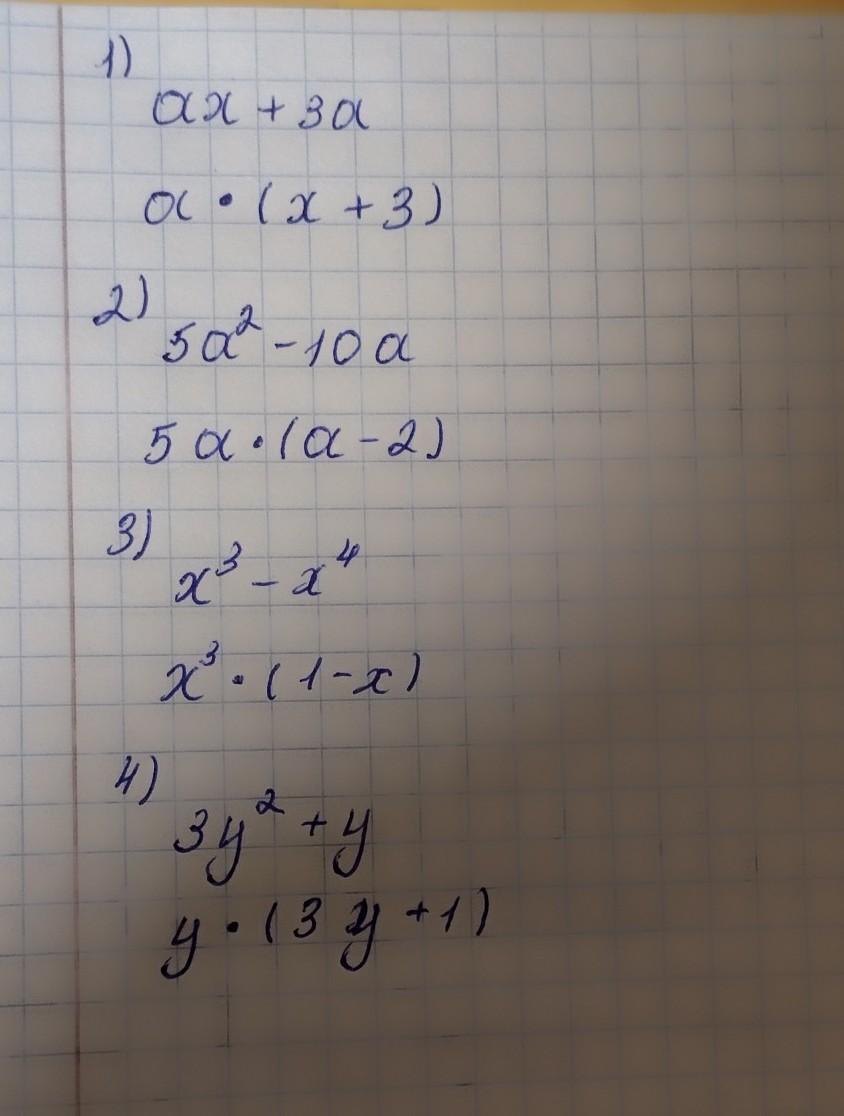 1)
ax + 3a
a · (x + 3)
2)
5a² - 10a
5a · (a - 2)
3)
x³ - x⁴
x³ · (1 - x)
4)
3y² + y
y · (3y + 1)